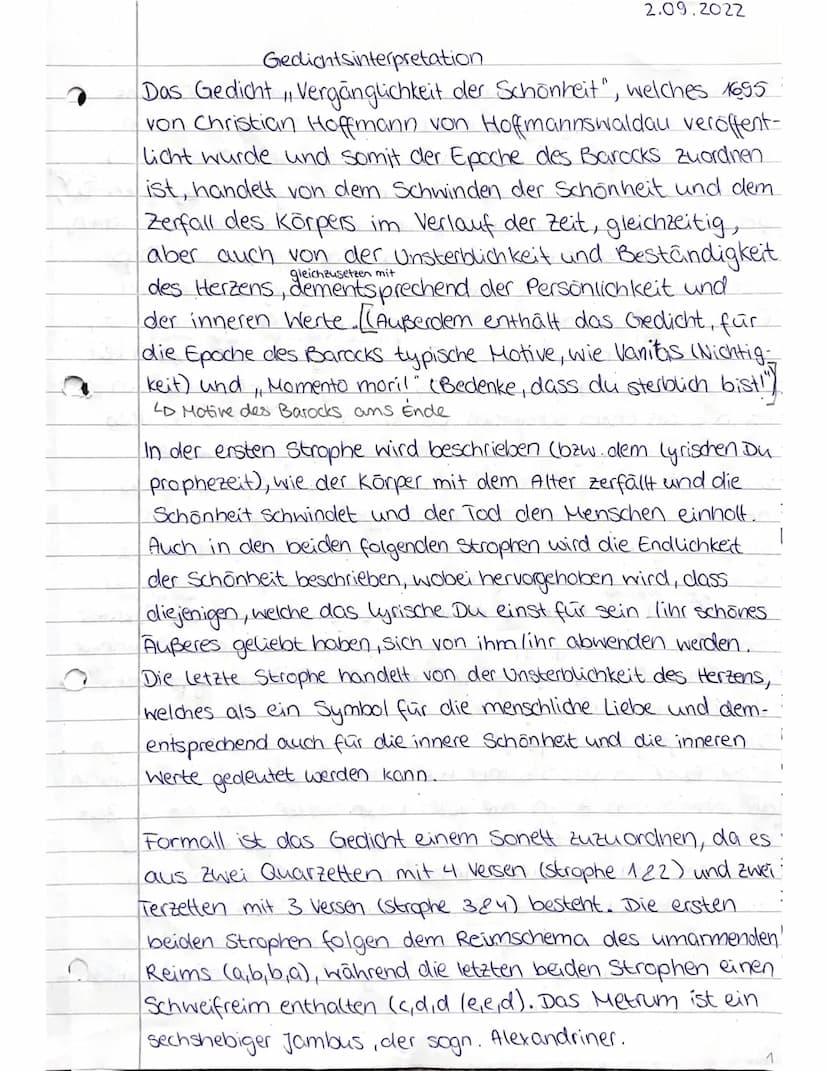 2.09.2022
Gedichtsinterpretation
Das Gedicht „Vergänglichkeit der Schönheit", welches 1695
von Christian Hoffmann von Hofmannswaldau veröffent-
licht wurde und somit der Epoche des Barocks zuordnen
ist, handelt von dem Schwinden der Schönheit und dem
Zerfall des Körpers im Verlauf der Zeit, gleichzeitig,
aber auch von der Unsterblichkeit und Beständigkeit
gleichzusetzen mit
des Herzens, dementsprechend der Persönlichkeit und
der inneren Werte. [(Außerdem enthält das Gedicht, für
die Epoche des Barocks typische Motive, wie Vanitas (Nichtig-
keit) und „Momento mori!" (Bedenke, dass du sterblich bist!")]
↳ Motive des Barocks ans Ende
In der ersten Strophe wird beschrieben (bzw. dem lyrischen Du
prophezeit), wie der Körper mit dem Alter zerfällt und die
Schönheit schwindet und der Tod den Menschen einholt.
Auch in den beiden folgenden Strophen wird die Endlichkeit
der Schönheit beschrieben, wobei hervorgehoben wird, dass
diejenigen, welche das lyrische Du einst für sein /ihr schönes
Äußeres geliebt haben, sich von ihm/ihr abwenden werden.
Die letzte Strophe handelt von der Unsterblichkeit des Herzens,
welches als ein Symbol für die menschliche Liebe und dem-
entsprechend auch für die innere Schönheit und die inneren
Werte gedeutet werden kann.
Formall ist das Gedicht einem Sonett zuzuordnen, da es
aus zwei Quarzetten mit 4 Versen (Strophe 1&2) und zwei
Terzetten mit 3 Versen (Strophe 3&4) besteht. Die ersten
beiden Strophen folgen dem Reimschema des umarmenden
Reims (a,b,b,a), während die letzten beiden Strophen einen
Schweifreim enthalten (c,d,d /e,e,d). Das Metrum ist ein
sechshebiger Jambus, der sogn. Alexandriner.
1